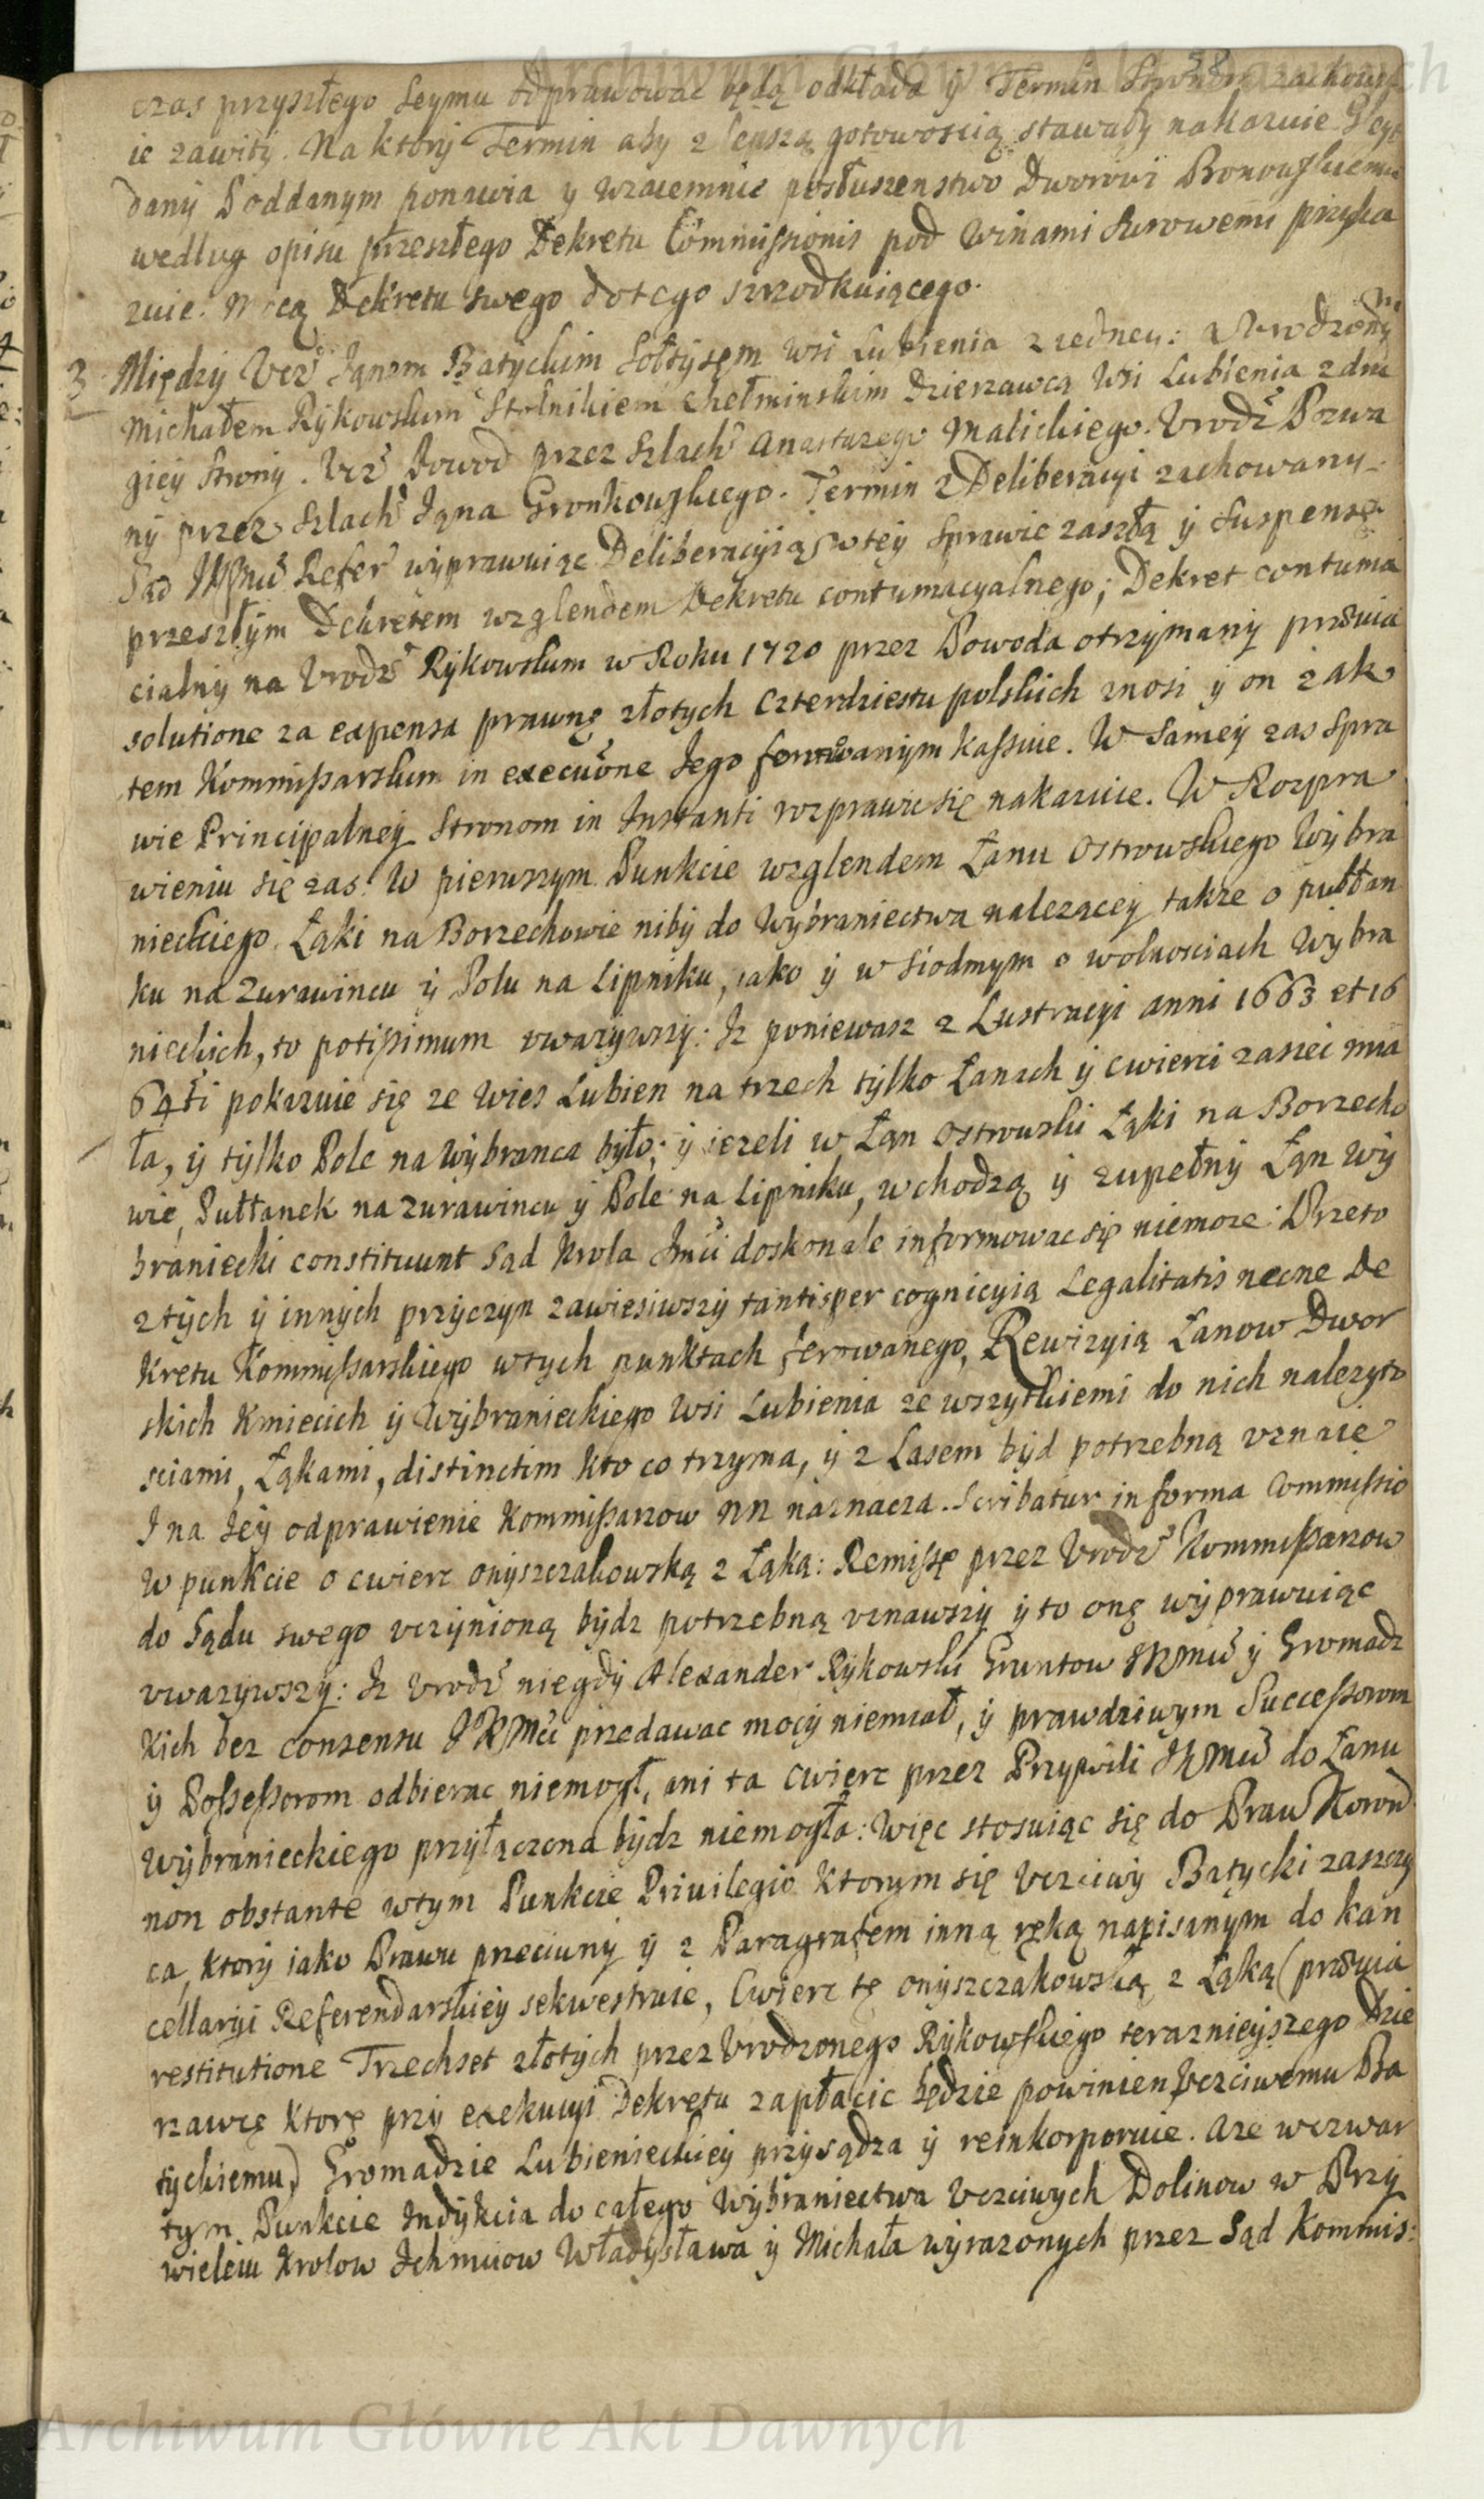 Archiwum Główne Akt Dawnych
38
czas przyszłego Seymu odprawować będą odkłada ÿ Termin Stronom zachowu
ie zawitÿ. Na ktorÿ Termin aby z lepszą gotowoscią stawałÿ nakazuie Gleyt
danÿ Poddanym ponawia y wzaiemnie posłuszenstwo Dworowi Bonowskiemu
według opisu przeszłego Dekretu Commissionis pod Winami Surowemi przyka
zuie. Mocą Dekretu Swego do tego szrodkuiącego.
3 Międzÿ Ucz Janem Batyckim Sołtysem wsi Lubienia z iedney: a Urodzonÿm
Michałem Rÿkowskim Stolnikiem Chełminskim Dzierzawcą Wsi Lubienia z dru
giey Stronÿ. Ucz Powod przez Szlach Anastazego Malickiego. Urodz Pozwa
nÿ przez Szlach Jana Gronkowskiego. Termin z Deliberacyi zachowany.
Sąd JKMci Refer wÿprawuiąc Deliberacyią w teÿ Sprawie zaszłą ÿ Suspensę
przeszłÿm Dekretem wzglendem Dekretu contumacyalnego; Dekret contuma
cialnÿ na Urodz Rÿkowskim w Roku 1720 przez Powoda otrzÿmanÿ prævia
solutione za expensa prawnę złotych Czterdziestu polskich znosi ÿ on z ak
tem Kommissarskim in executione Jego ferowanym kassuie. W Sameÿ zas Spra
wie Principalneÿ Stronom in Instanti rozprawic się nakazuie. W Rozpra
wieniu się zas. W pierwszym Punkcie wzglendem Łanu Ostrowskiego Wÿbra
nieckiego Łąki na Borzechowie nibÿ do Wÿbraniectwa nalezącey także o pułłan
ku na Zurawincu ÿ Polu na Lipniku, iako ÿ w siodmym o wolnosciach Wÿbra
nieckich, to potissimum uwazÿwszÿ: Iz poniewasz z Lustracyi anni 1663 et 16
64ti pokazuie się ze Wies Lubien na trzech tÿlko Łanach ÿ cwierci zasiec mia
ła, ÿ tÿlko Pole na Wÿbranca było; ÿ iezeli w Łan Ostrowski Łąki na Borzecho
wie, Pułłanek na Zurawincu ÿ Pole na Lipniku, wchodzą ÿ zupełnÿ Łan Wÿ
braniecki constituunt Sąd Krola Jmci doskonale informowac się niemoze: Przeto
z tÿch ÿ innÿch przÿczyn zawiesiwszÿ tantisper cognicyią Legalitatis necne De
kretu Kommissarskiego w tych punktach ferowanego, Rewizyią Łanow Dwor
skich Kmiecich ÿ Wÿbranieckiego Wsi Lubienia ze wszytkiemi do nich nalezyto
sciami, Łąkami, distinctim kto co trzyma, ÿ z Lasem bÿd potrzebną uznaie
I na Jeÿ odprawienie Kommissarzow NN naznacza. Scribatur in forma Commissio
W punkcie o cwierc onyszczakowską z Łąką: Remissę przez Urodz Kommissarzow
do Sądu swego uczÿnioną bÿdz potrzebną uznawszÿ ÿ to onę wÿprawuiąc
uwazÿwszÿ: Iz Urodz niegdÿ Alexander Rÿkowski Gruntow JKMci ÿ Gromadz
kich bez consensu JKMci przedawac mocÿ niemiał, ÿ prawdziwym Successorom
ÿ Possessorom odbierac niemogł, ani ta Cwierc przez Przywili JKMci do Łanu
Wÿbranieckiego przÿłączona bÿdz niemogła: Więc stosuiąc się do Praw Koron
non obstante w tym Punkcie Privilegio ktorym się Uczciwÿ Batycki zaszczy
ca, ktorÿ iako Prawu przeciwnÿ ÿ z Paragrafem inną ręką napisanym do kan
cellaryi Referendarskieÿ sekwestruie, Cwierc tę onyszczakowską z Łąką (prævia
restitutione Trzechset złotÿch przez Urodzonego Rÿkowskiego terazniejszego Dzie
rzawcę ktorę przÿ exekucyi Dekretu zapłacic będzie powinien Uczciwemu Ba
tÿckiemu) Gromadzie Lubienieckieÿ przÿsądza ÿ reinkorporuie. Aze w czwar
tym Punkcie Indÿkcia do całego Wÿbraniectwa Uczciwych Dolinow w Przÿ
wieleiu Krolow Ichmciow Władysława ÿ Michała wÿrazonych przez Sąd Kommis:
Archiwum Główne Akt Dawnych